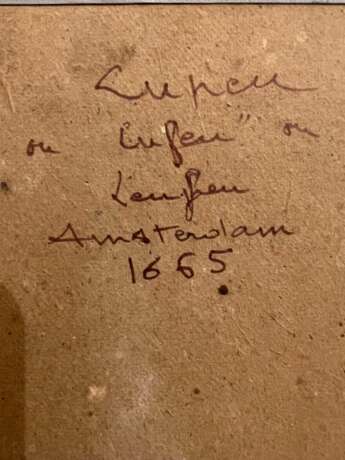 Lupen
ou "Lufen" ou
Leufen
Amsterdam
1665.